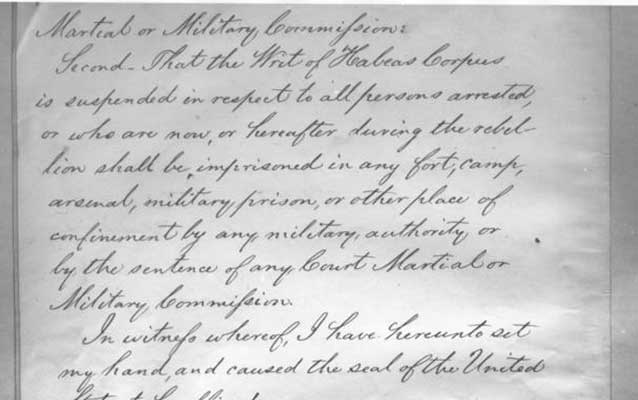 Martial or Military Commission:
Second - That the Writ of Habeas Corpus
is suspended in respect to all persons arrested,
or who are now, or hereafter during the rebel-
lion shall be, imprisoned in any fort, camp,
arsenal, military prison, or other place of
confinement by any military, authority or
by the sentence of any Court Martial or
Military Commission.
In witness whereof, I have hereunto set
my hand, and caused the seal of the United